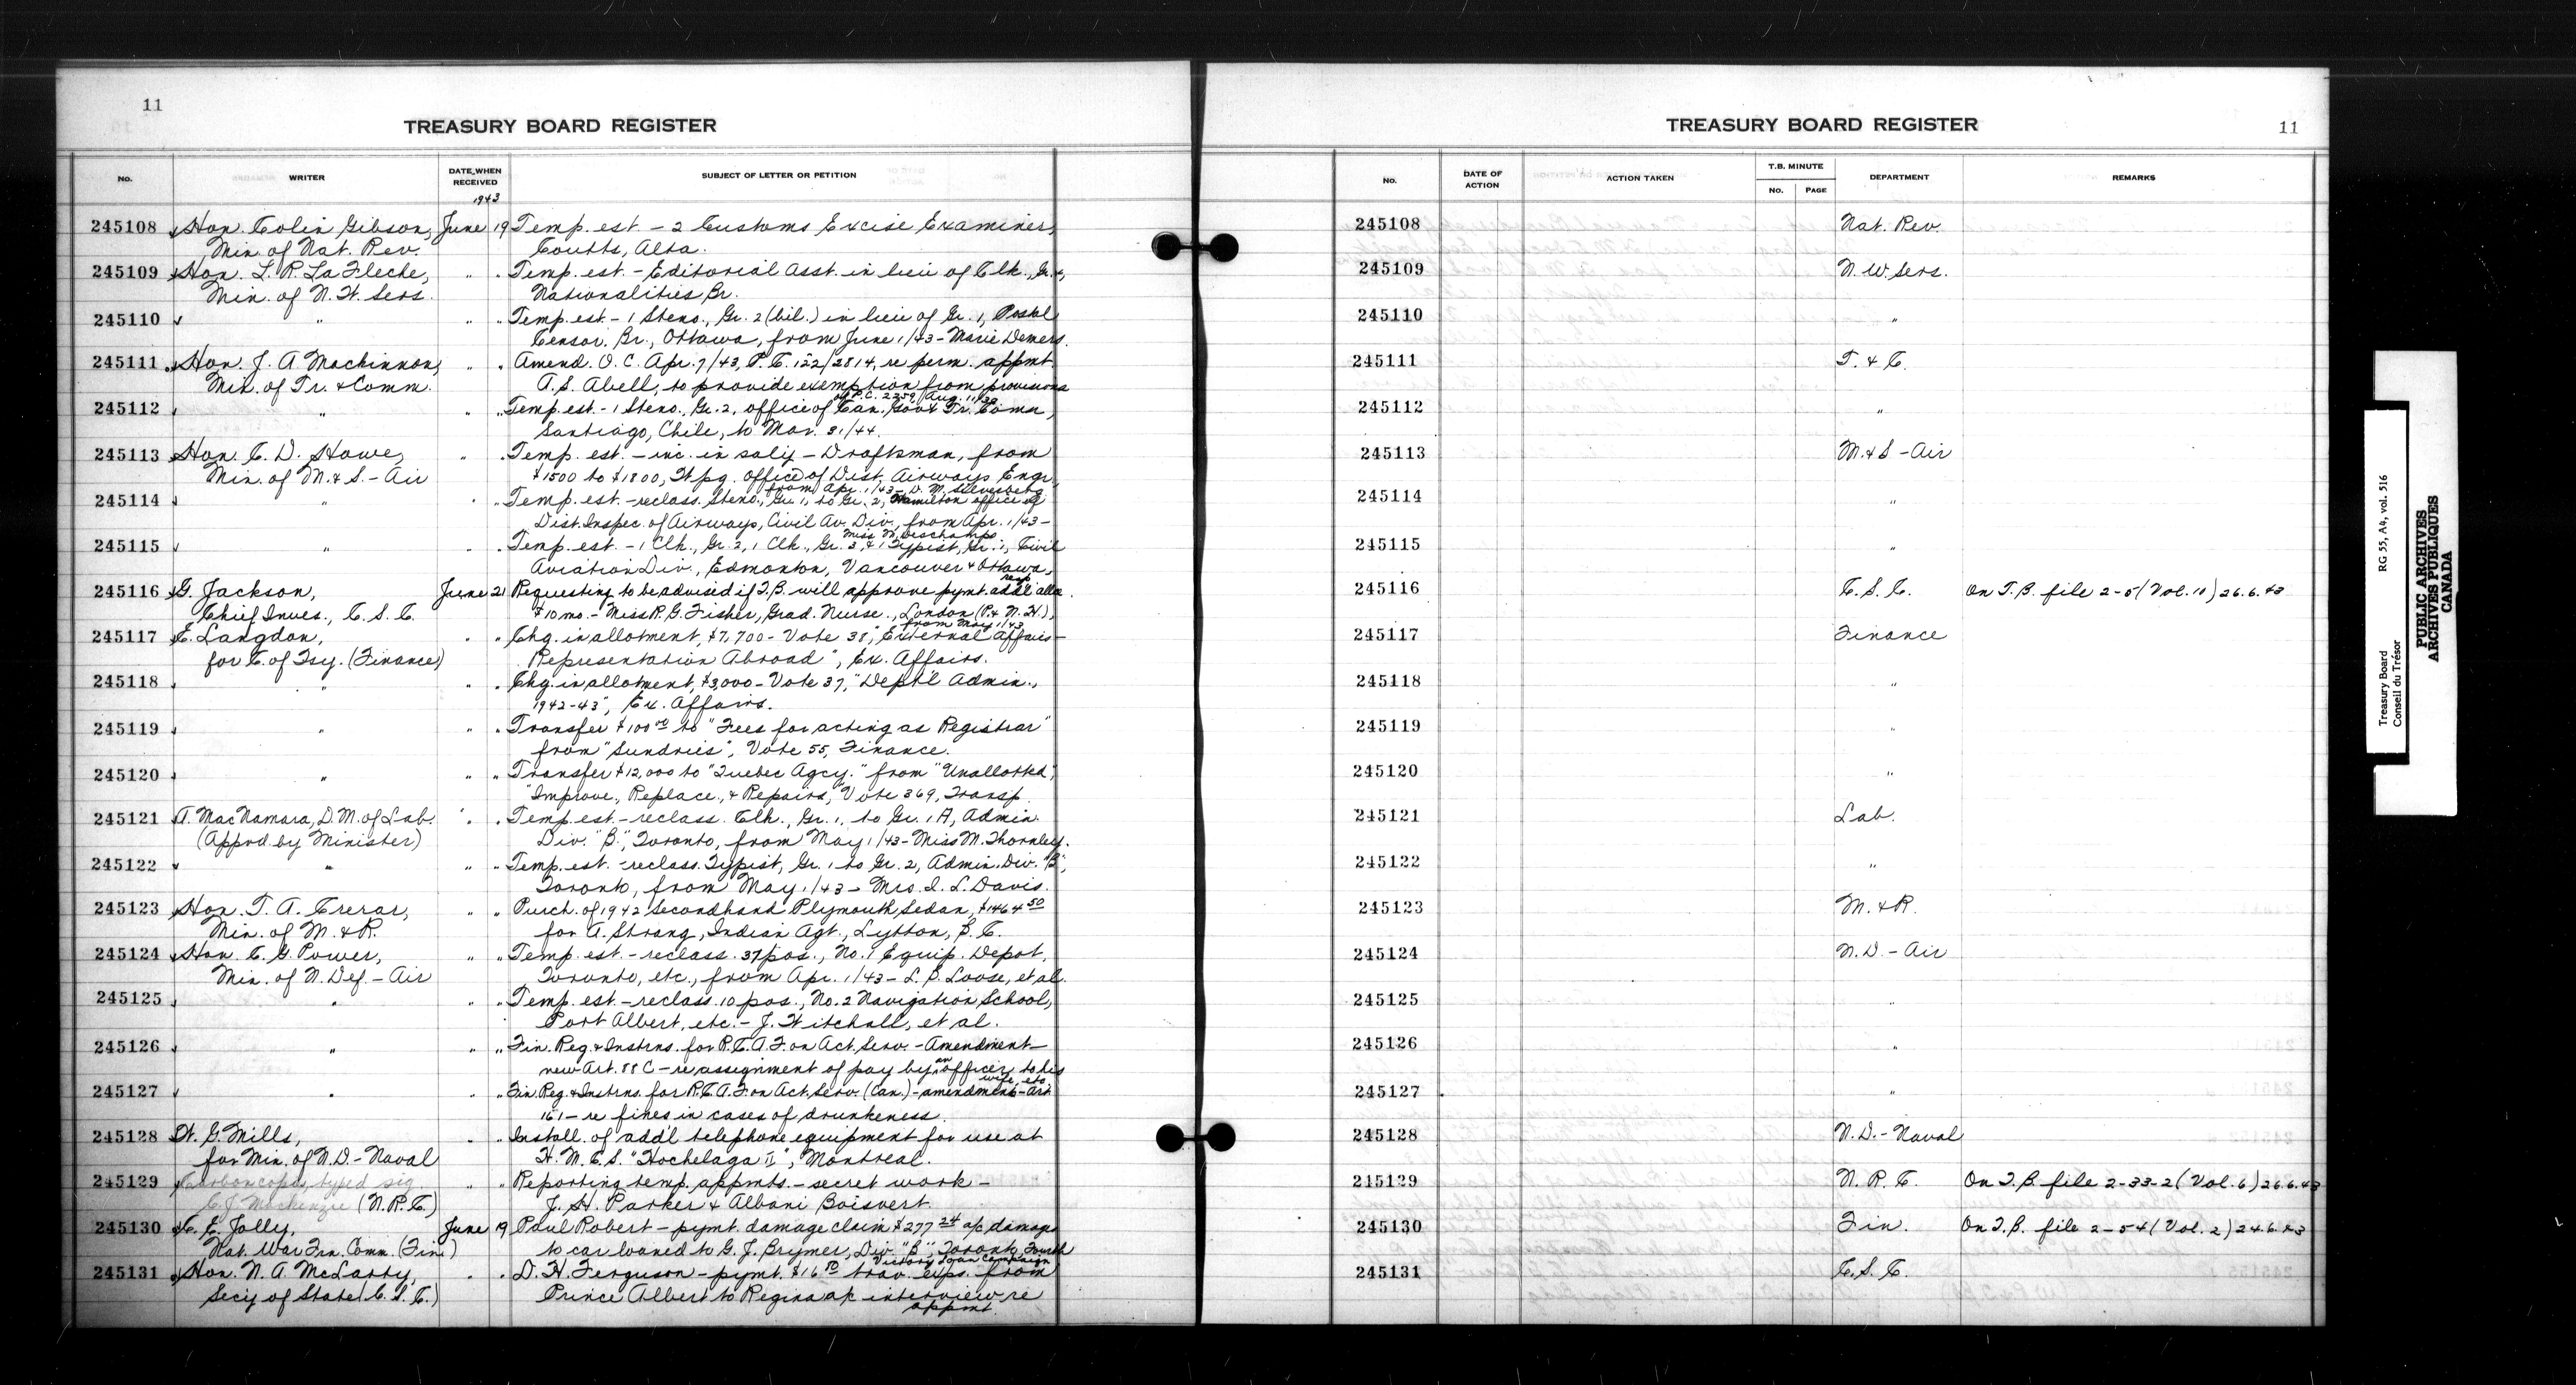 11
TREASURY BOARD REGISTER
No. WRITER DATE WHEN RECEIVED SUBJECT OF LETTER OR PETITION
1943
245108 Hon. Colin Gibson, June 19 Temp. est. - 2 Customs Excise Examiners,
Min. of Nat. Rev. Coutts, Alta.
245109 Hon. L. R. LaFleche, " " Temp. est. - Editorial Asst. in lieu of Clk., Gr. 4,
Min. of N. W. Sers. Nationalities Br.
245110 " " " Temp. est. - 1 Steno., Gr. 2 (bil.) in lieu of Gr. 1, Postal
Censor. Br., Ottawa, from June 1/43 - Marie Demers.
245111 Hon. J. A. MacKinnon, " " Amend. O. C. Apr. 7/43, P. C. 122/2814, re perm. appmt.
Min. of Tr. & Comm. A. S. Abell, to provide exemption from provisions
of P.C. 2259, Aug. 11/30
245112 " " " Temp. est. - 1 Steno., Gr. 2, office of Can. Govt Tr. Comr,
Santiago, Chile, to Mar. 31/44.
245113 Hon. C. D. Howe, " " Temp. est. - inc. in saly - Draftsman, from
Min. of M. & S. - Air $1500 to $1800, Wpg. office of Dist. Airways Engr.
from Apr. 1/43 - D. M. Silverberg
245114 " " " Temp. est. - reclass. Steno., Gr. 1, to Gr. 2, Hamilton office of
Dist. Inspec. of Airways, Civil Av. Div., from Apr. 1/43 -
Miss M. Deschamps
245115 " " " Temp. est. - 1 Clk., Gr. 2, 1 Clk., Gr. 3, & 1 Typist, Gr. 1, Civil
Aviation Div., Edmonton, Vancouver & Ottawa,
resp.
245116 G. Jackson, June 21 Requesting to be advised if T.B. will approve pymt. add'l allce.
Chief Inves., C. S. C. $10 mo. - Miss R. G. Fisher, Grad. Nurse., London (P. & N. H.),
from May 1/43
245117 C. Langdon, " " Chg. in allotment, $7,700 - Vote 38, "External Affairs -
for C. of Tsy. (Finance) Representation Abroad", Ex. Affairs.
245118 " " " Chg. in allotment, $3,000 - Vote 37, "Dept'l Admin.,
1942-43", Ex. Affairs.
245119 " " " Transfer $100.00 to "Fees for acting as Registrar"
from "Sundries", Vote 55, Finance.
245120 " " " Transfer $12,000 to "Quebec Agcy." from "Unallotted",
"Improve., Replace., & Repairs," Vote 369, Transp.
245121 A. MacNamara, D. M. of Lab. " " Temp. est. - reclass. Clk., Gr. 1, to Gr. 1A, Admin.
(Appvd by Minister) Div. "B", Toronto, from May 1/43 - Miss M. Thornley.
245122 " " " Temp. est. - reclass. Typist, Gr. 1 to Gr. 2, Admin. Div. "B",
Toronto, from May 1/43 - Mrs. I. L. Davis.
245123 Hon. T. A. Crerar, " " Purch. of 1942 Secondhand Plymouth Sedan, $1464.50
Min. of M. & R. for A. Strang, Indian Agt., Lytton, B. C.
245124 Hon. C. G. Power, " " Temp. est. - reclass. 37 pos., No. 1 Equip. Depot,
Min. of N. Def. - Air Toronto, etc., from Apr. 1/43 - L. B. Loose, et al.
245125 " " " Temp. est. - reclass. 10 pos., No. 2 Navigation School,
Port Albert, etc. - J. Witchall, et al.
245126 " " " Fin. Reg. & Instrns. for R. C. A. F. on Act. Serv. - Amendment -
new Art. 88 C - re assignment of pay by an officer to his
wife, etc.
245127 " " " Fin. Reg. & Instrns. for R. C. A. F. on Act. Serv. (Can.) - amendment - Art.
161 - re fines in cases of drunkeness.
245128 W. G. Mills, " " Install. of add'l telephone equipment for use at
for Min. of N. D. - Naval H. M. C. S. "Hochelaga II", Montreal.
245129 Carbon copy, typed sig. " " Reporting temp. appmts. - secret work -
C. J. Mackenzie (N. R. C.) J. H. Parker & Albani Boisvert.
245130 C. E. Jolly, June 19 Paul Robert - pymt. damage claim $277.24 a/c damage
Nat. War Fin. Comm. (Fin.) to car loaned to G. J. Brymer, Div. "B", Toronto, Fourth
Victory Loan Campaign
245131 Hon. N. A. McLarty, " " D. H. Ferguson - pymt. $16.50 trav. exps. from
Secy of State (C. S. C.) Prince Albert to Regina a/c interview re
appmt.
TREASURY BOARD REGISTER
11
No. DATE OF ACTION ACTION TAKEN T.B. MINUTE No. PAGE DEPARTMENT REMARKS
245108 Nat. Rev.
245109 N. W. Sers.
245110 "
245111 T. & C.
245112 "
245113 M. & S - Air
245114 "
245115 "
245116 C. S. C. On T. B. file 2-5 (Vol. 10) 26.6.43
245117 Finance
245118 "
245119 "
245120 "
245121 Lab.
245122 "
245123 M. & R.
245124 N. D. - Air
245125 "
245126 "
245127 "
245128 N. D. - Naval
245129 N. R. C. On T. B. file 2-33-2 (Vol. 6) 26.6.43
245130 Fin. On T. B. file 2-54 (Vol. 2) 24.6.43
245131 C. S. C.
Treasury Board RG 55, A4, vol. 516
Conseil du Trésor
PUBLIC ARCHIVES
ARCHIVES PUBLIQUES
CANADA